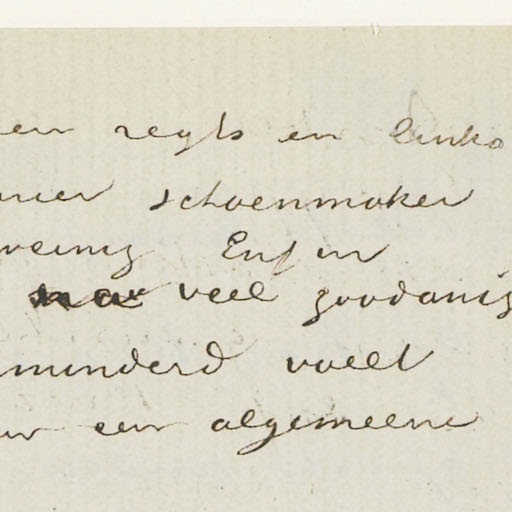 en regts en links
schoenmaker
weinig Enfin
veel zoodanig
minderd voelt
een algemeene